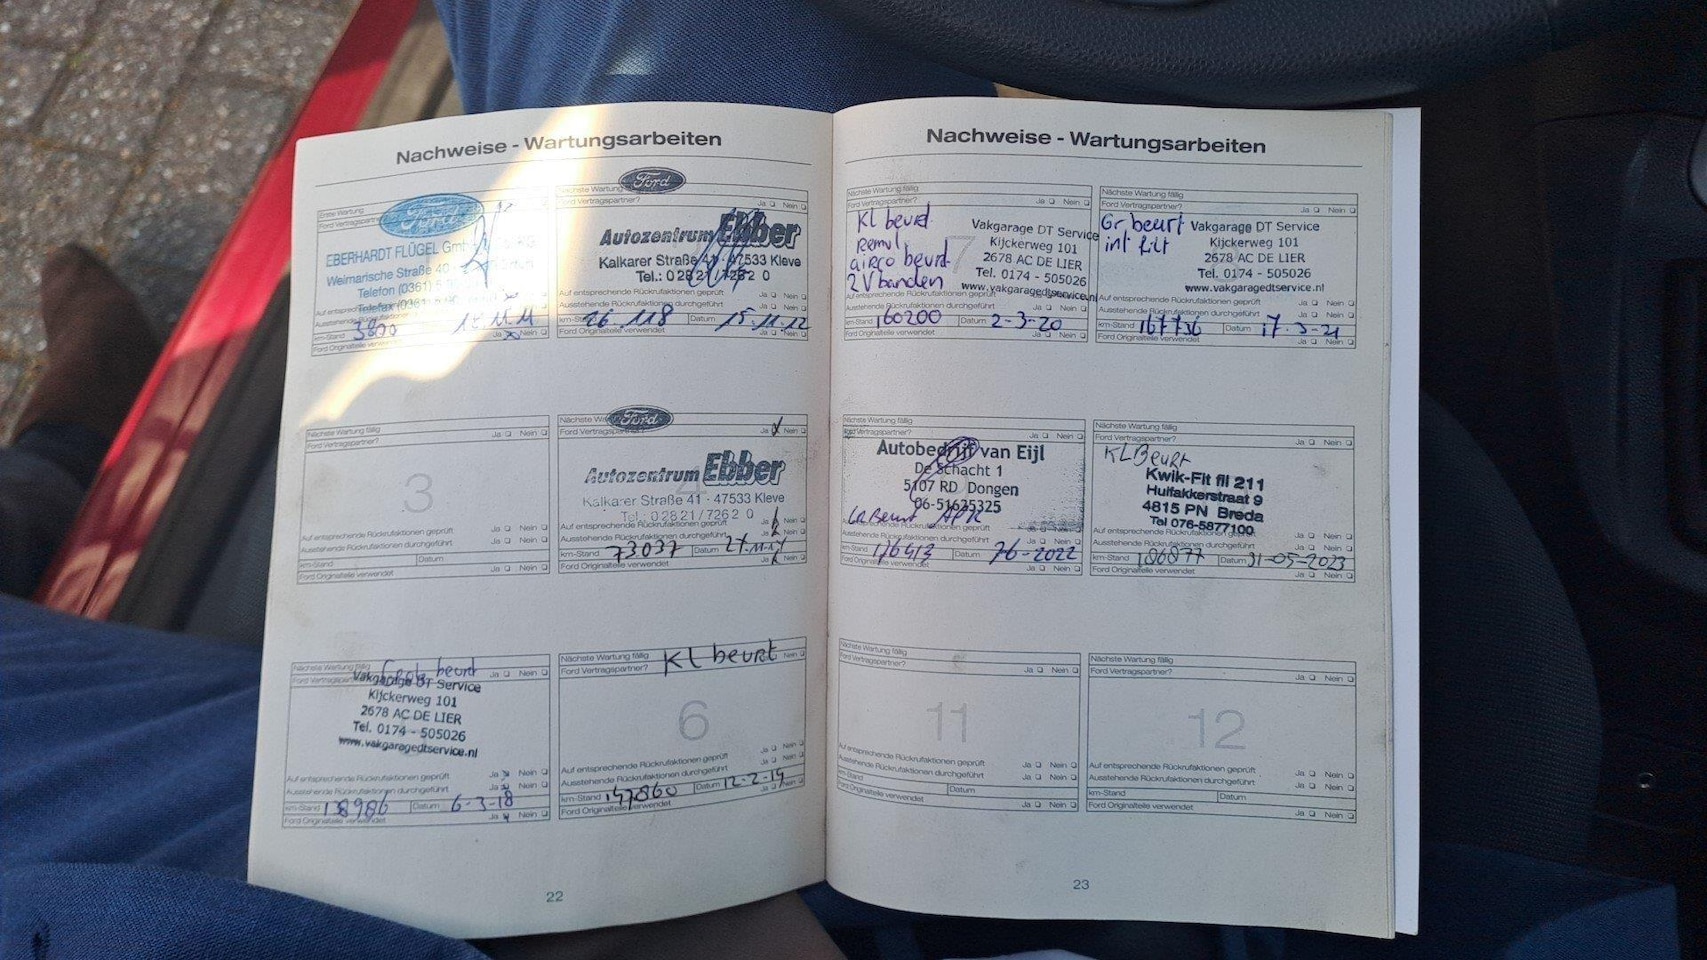 Nachweise - Wartungsarbeiten
Erste Wartung
Ford
EBERHARDT FLÜGEL
Weimarische Straße 40
Telefon (0361)
Telefax (0361)
km-Stand 3800 Datum
Ford Originalteile verwendet Ja Nein
Ford
Nächste Wartung
Ford Vertragspartner? Ja Nein
Autozentrum Ebber
Kalkarer Straße 41 · 47533 Kleve
Tel.: 0 28 21 / 7262 0
Auf entsprechende Rückrufaktionen geprüft Ja Nein
Ausstehende Rückrufaktionen durchgeführt Ja Nein
km-Stand 26.118 Datum 15.11.12
Ford Originalteile verwendet Ja Nein
Nächste Wartung fällig
Ford Vertragspartner? Ja Nein
3
Auf entsprechende Rückrufaktionen geprüft Ja Nein
Ausstehende Rückrufaktionen durchgeführt Ja Nein
km-Stand Datum
Ford Originalteile verwendet Ja Nein
Ford
Ford Vertragspartner? Ja Nein
4
Autozentrum Ebber
Kalkarer Straße 41 · 47533 Kleve
Tel.: 0 28 21 / 726 2 0
Auf entsprechende Rückrufaktionen geprüft Ja Nein
Ausstehende Rückrufaktionen durchgeführt Ja Nein
km-Stand 73037 Datum
Ford Originalteile verwendet Ja Nein
Nächste Wartung fällig
Grote beurt
Vakgarage DT Service
Kijckerweg 101
2678 AC DE LIER
Tel. 0174 - 505026
www.vakgaragedtservice.nl
Auf entsprechende Rückrufaktionen geprüft Ja Nein
Ausstehende Rückrufaktionen durchgeführt Ja Nein
km-Stand Datum 6-3-18
Ford Originalteile verwendet Ja Nein
Nächste Wartung fällig
Ford Vertragspartner? KL beurt Nein
6
Auf entsprechende Rückrufaktionen geprüft Ja Nein
Ausstehende Rückrufaktionen durchgeführt Ja Nein
km-Stand 147860 Datum 12-2-19
Ford Originalteile verwendet Ja Nein
22
Nachweise - Wartungsarbeiten
Nächste Wartung fällig
Ford Vertragspartner? Ja Nein
7
KL beurt
remol
airco beurt
2 V banden
Vakgarage DT Service
Kijckerweg 101
2678 AC DE LIER
Tel. 0174 - 505026
www.vakgaragedtservice.nl
Auf entsprechende Rückrufaktionen geprüft
Ausstehende Rückrufaktionen durchgeführt Ja Nein
km-Stand 160200 Datum 2-3-20
Ford Originalteile verwendet Ja Nein
Nächste Wartung fällig
Ford Vertragspartner? Ja Nein
Gr beurt
int filt
Vakgarage DT Service
Kijckerweg 101
2678 AC DE LIER
Tel. 0174 - 505026
www.vakgaragedtservice.nl
Auf entsprechende Rückrufaktionen geprüft Ja Nein
Ausstehende Rückrufaktionen durchgeführt Ja Nein
km-Stand 167736 Datum 17-3-21
Ford Originalteile verwendet Ja Nein
Nächste Wartung fällig
Ford Vertragspartner? Ja Nein
Autobedrijf van Eijl
De Schacht 1
5107 RD Dongen
06-51625325
GR Beurt APK
Ausstehende Rückrufaktionen durchgeführt Ja Nein
km-Stand 176413 Datum
Ford Originalteile verwendet Ja Nein
Nächste Wartung fällig
Ford Vertragspartner? Ja Nein
KL Beurt
Kwik-Fit fil 211
Huifakkerstraat 9
4815 PN Breda
Tel 076-5877100
Auf entsprechende Rückrufaktionen geprüft Ja Nein
Ausstehende Rückrufaktionen durchgeführt Ja Nein
km-Stand 186877 Datum 31-05-2023
Ford Originalteile verwendet Ja Nein
Nächste Wartung fällig
Ford Vertragspartner? Ja Nein
11
Auf entsprechende Rückrufaktionen geprüft Ja Nein
Ausstehende Rückrufaktionen durchgeführt Ja Nein
km-Stand Datum
Ford Originalteile verwendet Ja Nein
Nächste Wartung fällig
Ford Vertragspartner? Ja Nein
12
Auf entsprechende Rückrufaktionen geprüft Ja Nein
Ausstehende Rückrufaktionen durchgeführt Ja Nein
km-Stand Datum
Ford Originalteile verwendet Ja Nein
23